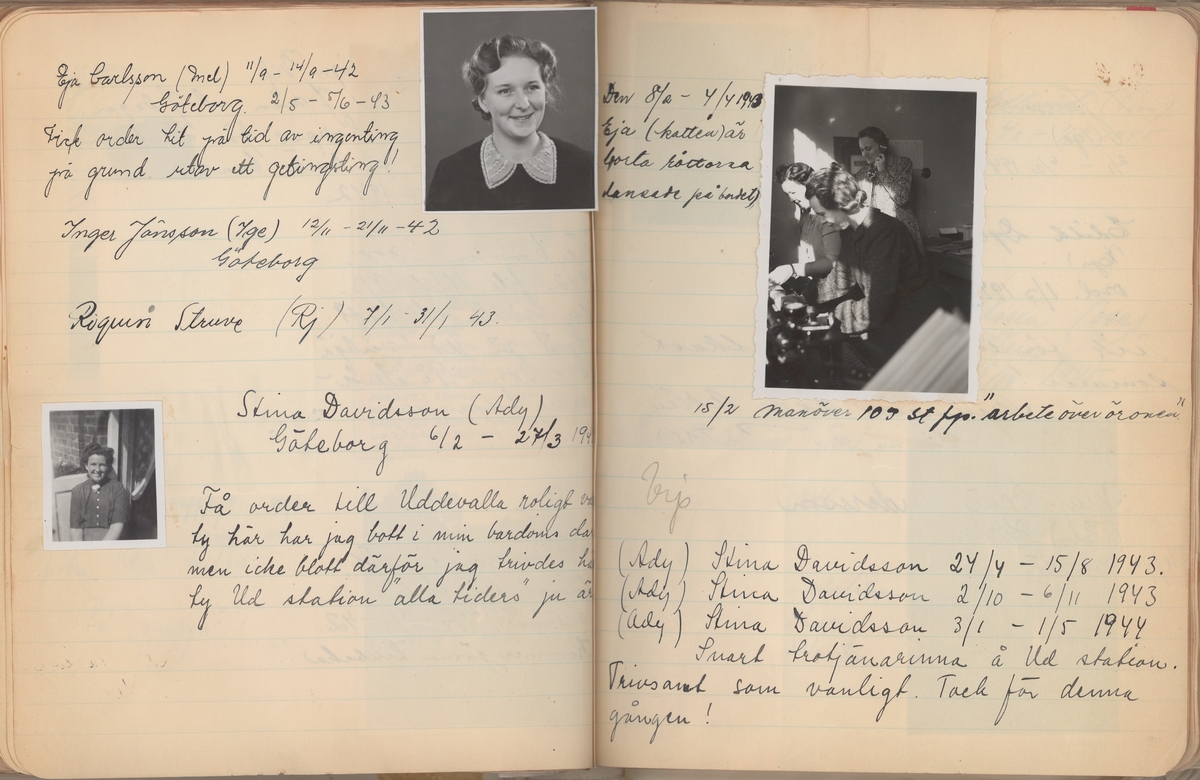 Eja Carlsson (Mel) 11/9 - 14/9 - 42
Göteborg. 2/5 - 7/6 - 43
Fick order hit på tid av ingenting
på grund utav ett getingsting!
Inger Jönsson (Ige) 12/11 - 21/11 - 42
Göteborg
Struve (Rj) 7/1 - 31/1 43.
Stina Davidsson (Ady)
Göteborg 6/2 - 27/3 194
Få order till Uddevalla roligt va
ty här har jag bott i min bardoms da
men icke blott därför jag trivdes hä
ty Ud station "alla tiders" ju är
Den 8/ - 4/4 1943
Eja (katten) är
borta råttorna
dansade på bordet)
15/2 Manöver 109 st fyp. "arbete över öronen"
(Ady) Stina Davidsson 24/4 - 15/8 1943.
(Ady) Stina Davidsson 2/10 - 6/11 1943
(Ady) Stina Davidsson 3/1 - 1/5 1944
Snart trotjänarinna å Ud station.
Trivsamt som vanligt. Tack för denna
gången!